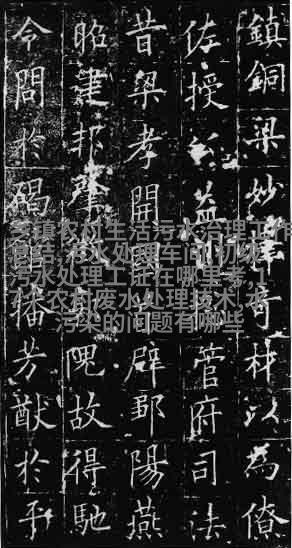 鎮銅梁妙擇奇材以為僚
佐授公益州管府司法
昔梁孝開國首辟鄒陽燕
昭建邦肇郭隗故得馳
令問於碣館播芳猷於平
乡镇农村生活污水治理工作
总结,污水处理车间,初级
污水处理工证在哪里考,1
个农村废水处理技术,水
污染的问题有哪些